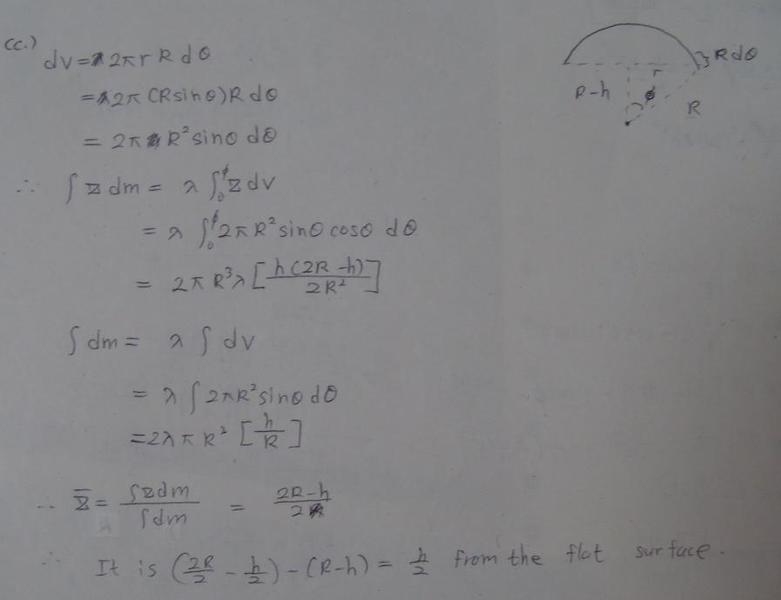 (c.)
dv = 2πr R dθ
= 2π (R sinθ) R dθ
= 2π R² sinθ dθ
∴ ∫ z dm = λ ∫₀^ϕ z dv
= λ ∫₀^ϕ 2π R² sinθ cosθ dθ
= 2π R³ λ [h(2R - h) / 2R²]
∫ dm = λ ∫ dv
= λ ∫ 2πR² sinθ dθ
= 2λπR² [h/R]
∴ z̄ = ∫z dm / ∫dm = (2R - h) / 2
∴ It is (2R/2 - h/2) - (R - h) = h/2 from the flat surface.
R dθ
r
R - h
ϕ
R